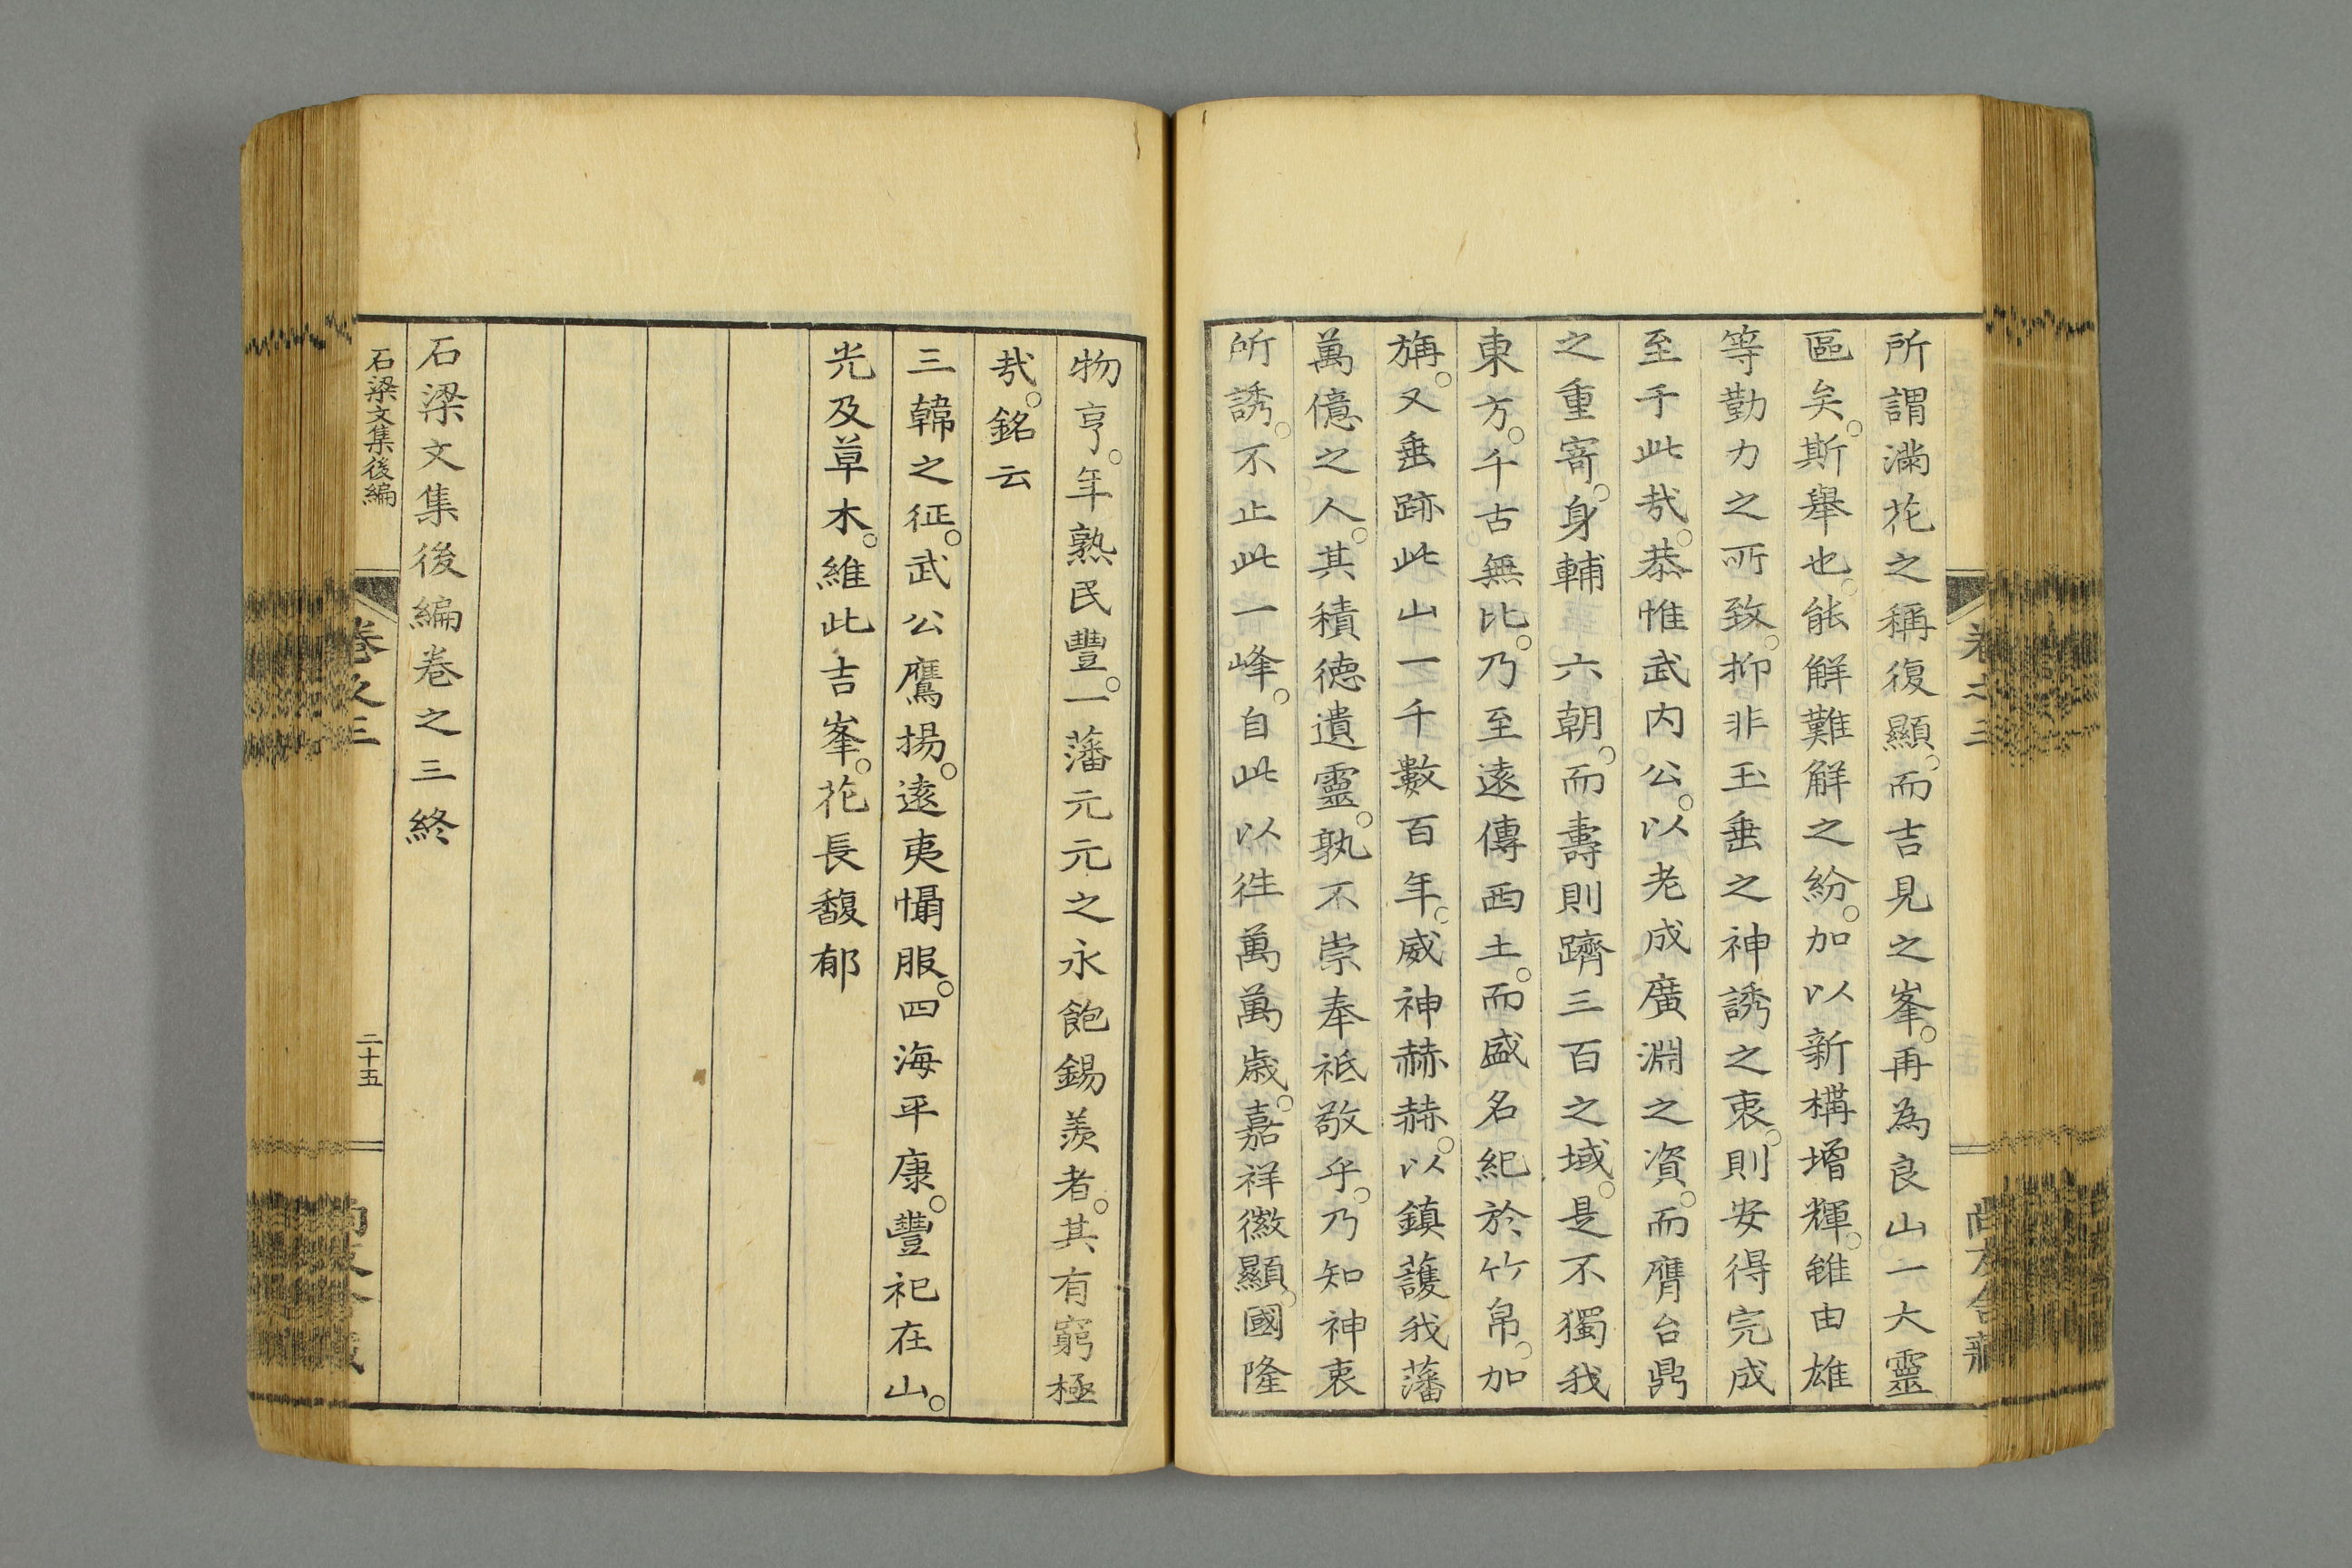 所謂滿花之稱復顯。而吉見之峯。再為良山一大靈
區矣。斯舉也。能解難解之紛。加以新構增輝。雖由雄
等勤力之所致。抑非玉垂之神誘之衷。則安得完成
至于此㢤。恭惟武内公。以老成廣淵之資。而膺台鼎
之重寄。身輔六朝。而壽則躋三百之域。是不獨我
東方。千古無比。乃至遠傳西土。而盛名紀於竹帛。加
旃。又垂跡此山一千數百年。威神赫赫。以鎮護我藩
萬億之人。其積德遺靈。孰不崇奉祗敬乎。乃知神衷
所誘。不止此一峰。自此以徃萬萬歲。嘉祥徽顯。國隆
物亨。年熟民豐。一藩元元之永飽錫羨者。其有窮極
㢤。銘云
三韓之征。武公鷹揚。遠夷慴服。四海平康。豐祀在山。
光及草木。維此吉峯。花長馥郁
石梁文集後編卷之三終
石梁文集後編
卷之三
二十五